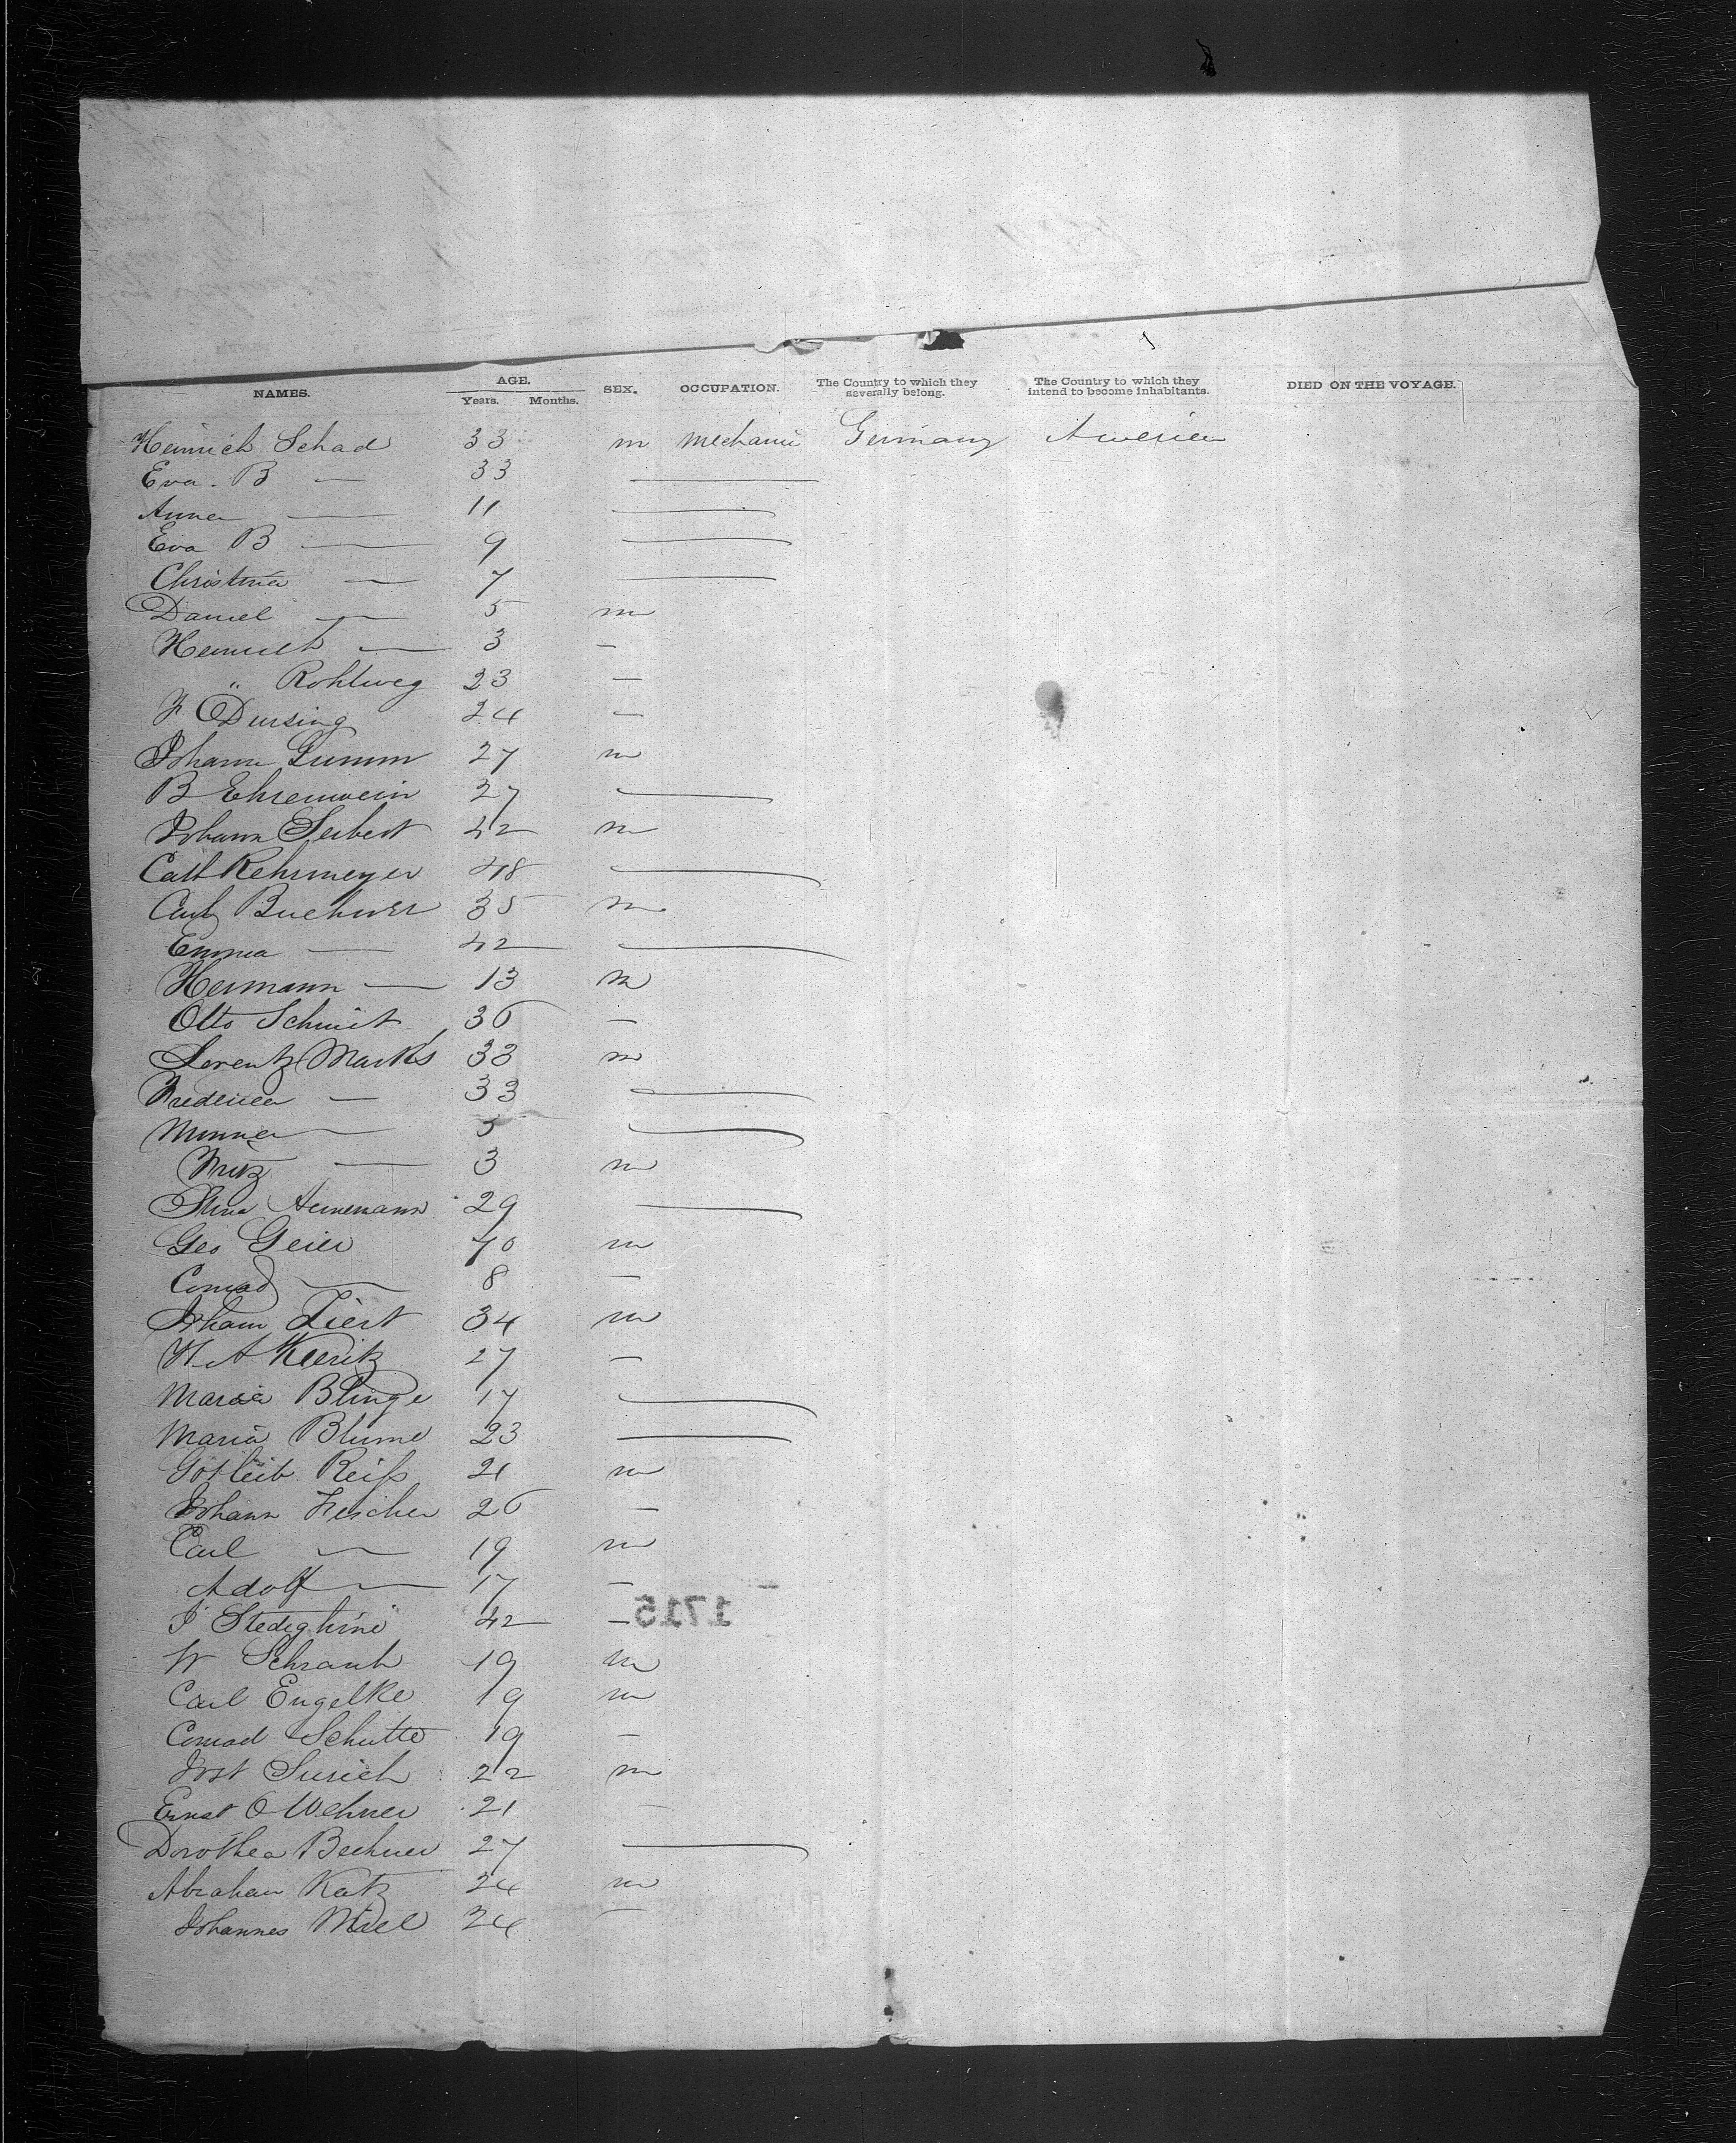 NAMES. AGE. Years. Months. SEX. OCCUPATION. The Country to which they severally belong. The Country to which they intend to become inhabitants. DIED ON THE VOYAGE.
Heinrich Schad 33 m Mechanic Germany America
Eva. B — 33 —
Anna — 11 —
Eva B — 9 —
Christina — 7 —
Daniel — 5 m
Heinrich — 3 —
" Rohlweg 23 —
F Dursing 24 —
Johann Gumm 27 m
B Ehrenwein 27 —
Johann Seibert 42 m
Cath Rehrmeyer 48 —
Carl Buchner 35 m
Emma — 42 —
Hermann — 13 m
Otto Schmit 36 —
Lorentz Marks 33 m
Frederica — 33 —
Minna — 5 —
Fritz — 3 m
Stina Heinemann 29 —
Geo Geier 70 m
Conrad — 8 —
Johann Tiert 34 m
H. A 27 —
Maria Blinge 17 —
Maria Blume 23 —
Gotleib Reiss 21 m
Johann Fischer 26 —
Carl — 19 m
Adolf — 17 —
J 42 —
1715
W Schraub 19 m
Carl Engelke 19 m
Conrad Schutte 19 —
Jost Surich 22 m
Ernst O Wehner 21 —
Dorothea Bechner 27 —
Abraham Katz 24 m
Johannes 24 —